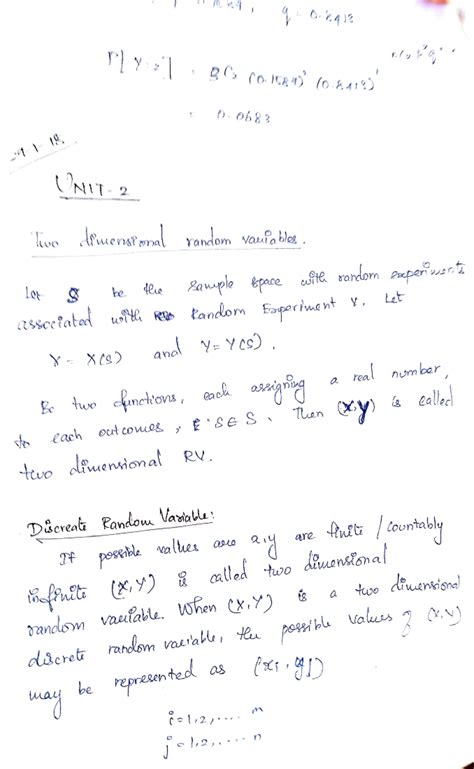 q = 0.8413
P[Y=2] = 3C2 (0.1587)² (0.8413)¹
= 0.0683
UNIT-2
Two dimensional random variables.
Let S be the sample space with random experiments
associated with Random Experiment Y. Let
X = X(S) and Y = Y(S).
Be two functions, each assigning a real number,
to each outcomes, S∈S. Then (X,Y) is called
two dimensional RV.
Discreate Random Variable:
If possible values are x,y are finite / countably
infinite (X,Y) is called two dimensional
random variable. When (X,Y) is a two dimensional
discrete random variable, the possible values of (X,Y)
may be represented as (xi, yj)
i=1,2,.... m
j=1,2,.... n